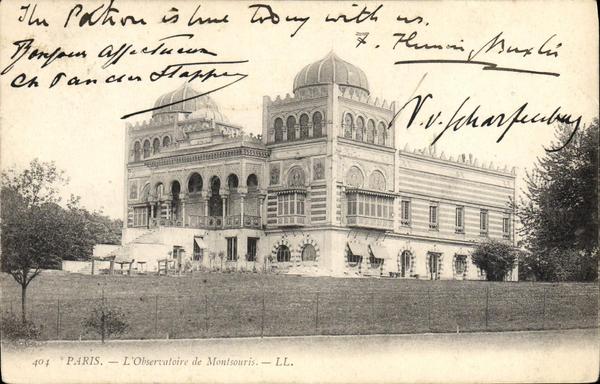 The Pothion is here today with us.
Bonjour affectueux
Ch Van der Stappen
F. Thumin Buxlin
V. v. Scharfenberg
404 PARIS. — L'Observatoire de Montsouris. — LL.